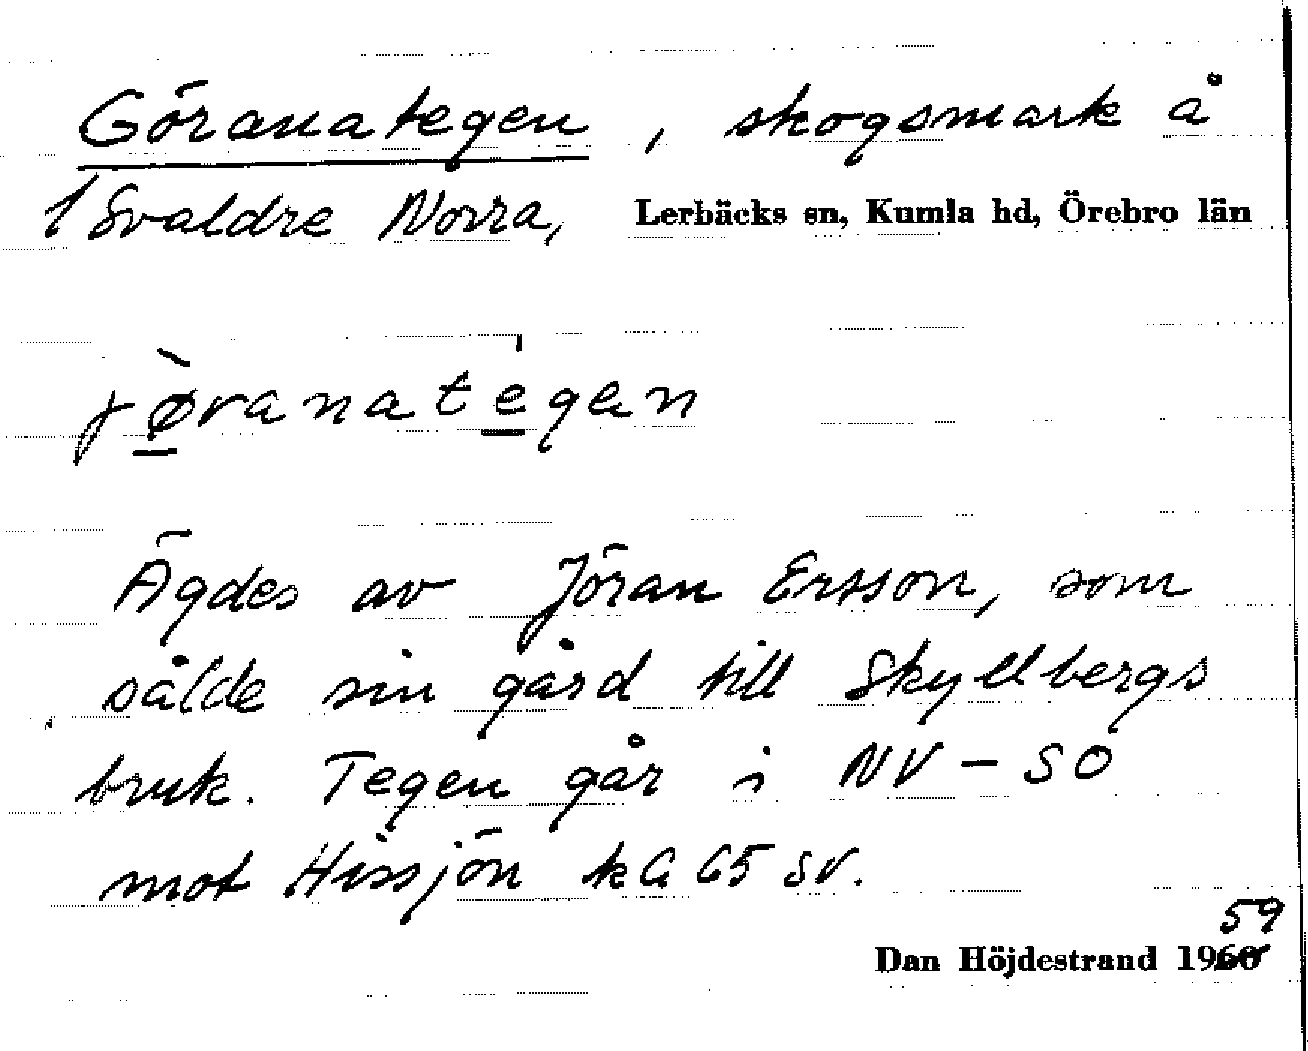 Göranategen, skogsmark å
1 Svaldre Norra, Lerbäcks sn, Kumla hd, Örebro län
jø̀ranatégen
Ägdes av Jöran Ersson, som
sålde sin gård till Skyllbergs
bruk. Tegen går i NV – SO
mot Hissjön kG G5 SV.
59
Dan Höjdestrand 1960